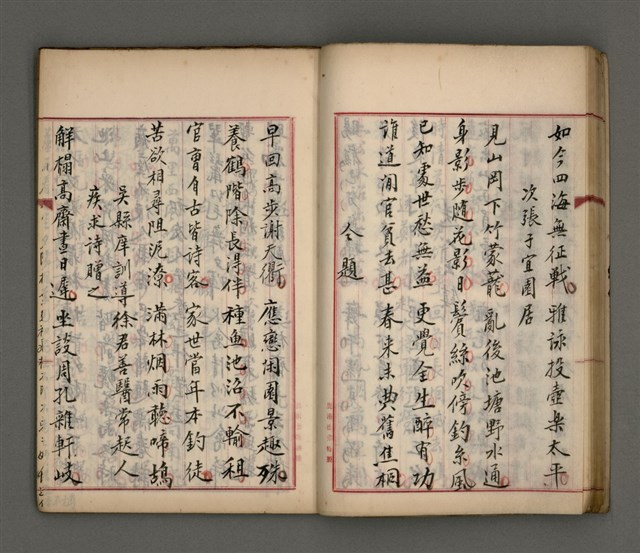 如今四海無征戰雅詠投壺樂太平
次張子宜園居
見山岡下竹蒙蘢亂後池塘野水通
身影步隨花影日鬢絲吹傍釣糸風
已知處世愁無益更覺全生醉有功
誰道閒官貧去甚春來未典舊焦桐
仝題
早回高步謝天衢應戀閒園景趣殊
養鶴階除長得伴種魚池沼不輸租
官曹自古皆詩客家世當年本釣徒
苦欲相尋阻泥潦滿林烟雨聽啼鴣
吳縣庠訓導徐君善醫常起人
疾求詩贈之
解榻高齋晝日遲坐談周孔雜軒岐